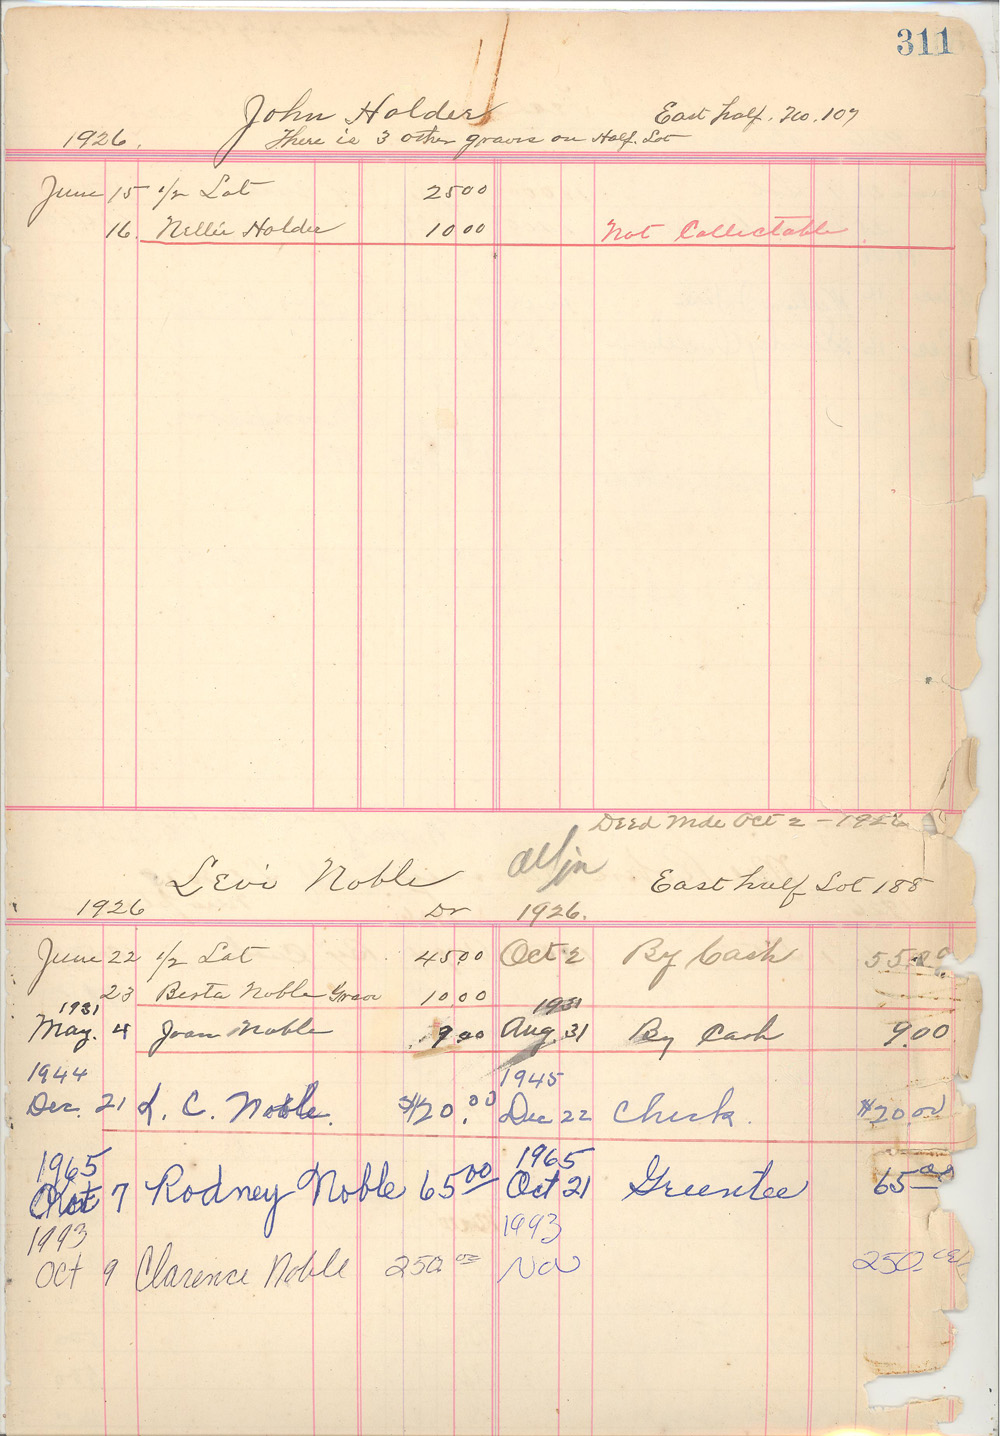 311
John Holder East half. No. 107
1926. There is 3 other graves on Half. Lot
June 15 1/2 Lot 25 00
16 Nellie Holder 10 00 Not Collectable
Deed Mde Oct 2 - 1926
Levi Noble East half Lot 188
1926 Dr 1926.
June 22 1/2 Lot 45 00 Oct 2 By Cash 55.00
23 Berta Noble Grave 10 00
1931 1931
May. 4 Joan Noble 9.00 Aug 31 By Cash 9.00
1944 1945
Dec. 21 L. C. Noble. $20.00 Dec 22 Check. $20.00
1965 1965
Oct 7 Rodney Noble 65 00 Oct 21 Greenlee 65 00
1993 1993
Oct 9 Clarence Noble 250. 00 Nov 250. 00